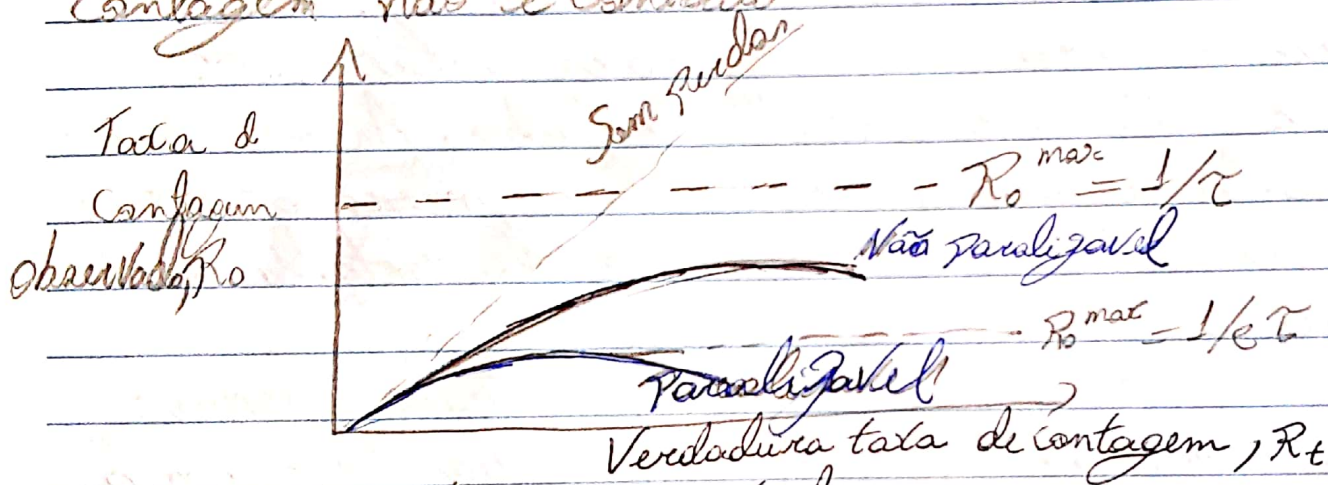 Contagem não é
Sem perdas
Taxa d
Contagem
observada, R₀
R₀ᵐᵃˣ = 1/τ
Não Paralizavel
R₀ᵐᵃˣ = 1/eτ
Paralizavel
Verdadeira taxa de contagem, Rt